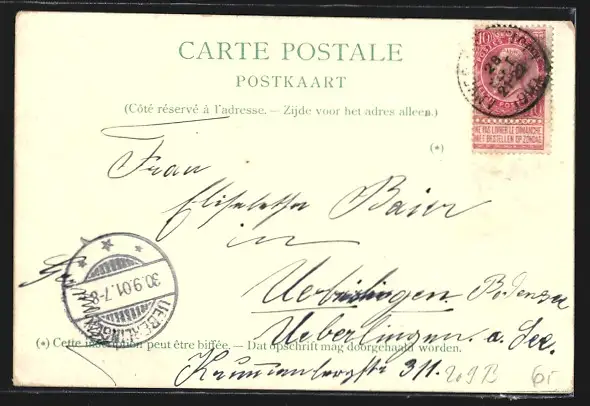 CARTE POSTALE
POSTKAART
(Côté réservé à l'adresse. — Zijde voor het adres alleen.)
(*)
10
NE PAS LIVRER LE DIMANCHE
NIET BESTELLEN OP ZONDAG
Frau
Elisabetha Baier
in
Ueberlingen Bodensee
Ueberlingen a. See.
30.9.01.7-8
UEBERLINGEN
(*) Cette inscription peut être biffée. — Dat opschrift mag doorgehaald worden.
311. 209 B